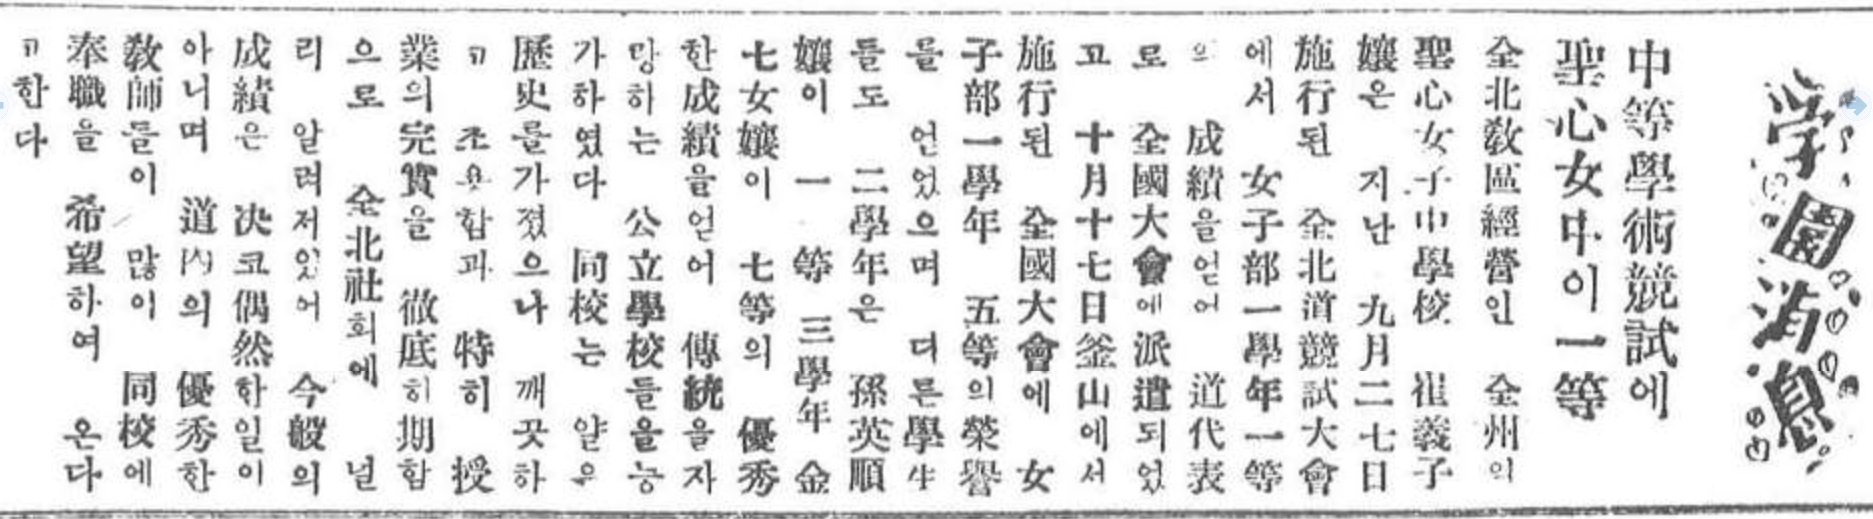 学園消息
中等學術競試에
聖心女中이一等
全北敎區經營인 全州의
聖心女子中學校 崔義子
孃은 지난 九月二七日
施行된 全北道競試大會
에서 女子部一學年一等
의 成績을얻어 道代表
로 全國大會에派遣되었
고 十月十七日釜山에서
施行된 全國大會에 女
子部一學年 五等의榮譽
를 얻었으며 더른學生
들도 二學年은 孫英順
孃이 一等 三學年 金
七女孃이 七等의 優秀
한成績을얻어 傳統을자
망하는 公立學校들을능
가하였다 同校는 얕은
歷史를가졌으나 깨끗하
고 조용함과 特히 授
業의完實을 徹底히期함
으로 全北社회에 널
리 알려저있어 今般의
成績은 决코偶然한일이
아니며 道內의 優秀한
敎師들이 많이 同校에
奉職을 希望하여 온다
고한다